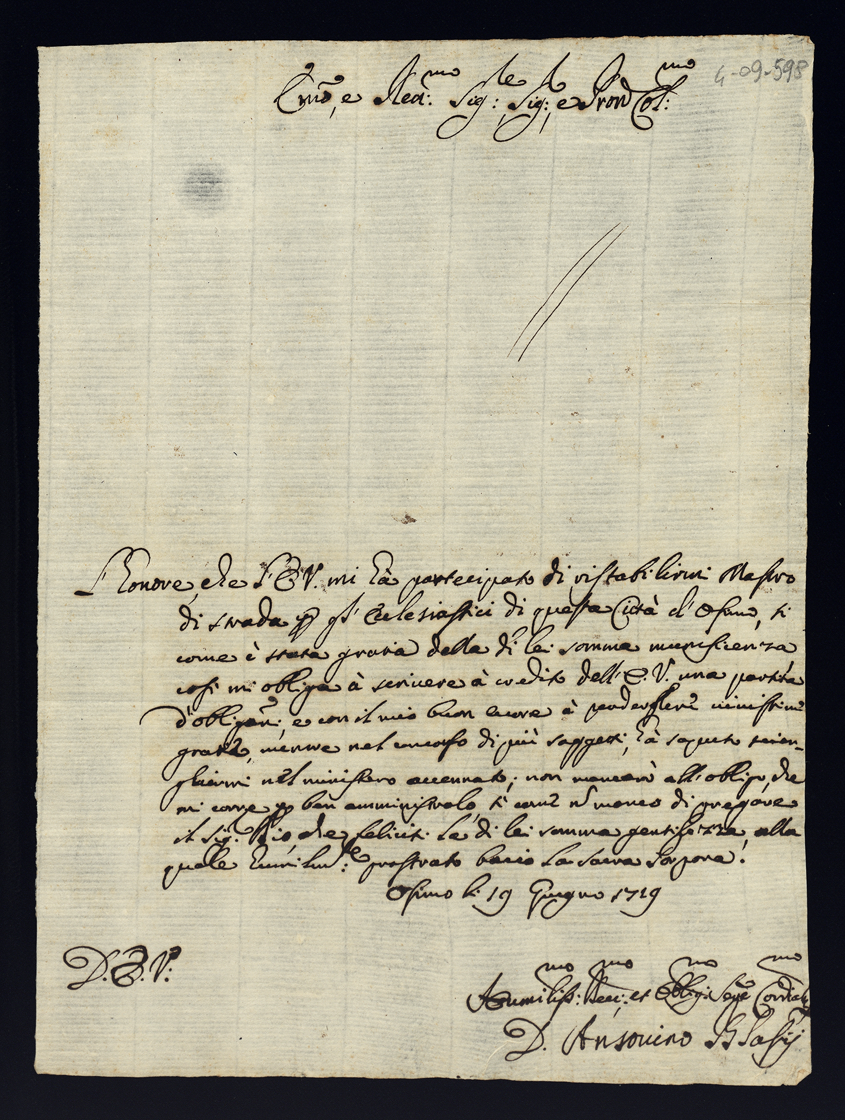 4-09-598
Em̃o, e Reu:mo Sig:re Sig:re e Pron Col:mo
L'honore, che l'E.V. mi hà partecipato di ristabilirmi Mastro
di strada p gl' Eclesiastici di questa Città d'Osimo, si
come è stata gratia della di lei somma munificenza
così mi obliga à scrivere à credito dell'E.V. una partita
d'oblig:ni, e con il mio buon cuore à
gratie, mentre nel concorso di più soggetti, hà saputo scien-
gliermi nel ministero accennato; non mancarò all'obligo, che
mi corre p ben amministrarlo si come nè manco di pregare
il Sig: Dio, che feliciti la di lei somma gentilezza, alla
quale humilm:te prostrato bacio la sacra Porpora.
Osimo li 19 Giugno 1719
D.E.V:
Humiliss:mo Deu:mo et Obblig:mo Ser:e
D. Ansovino Blasij